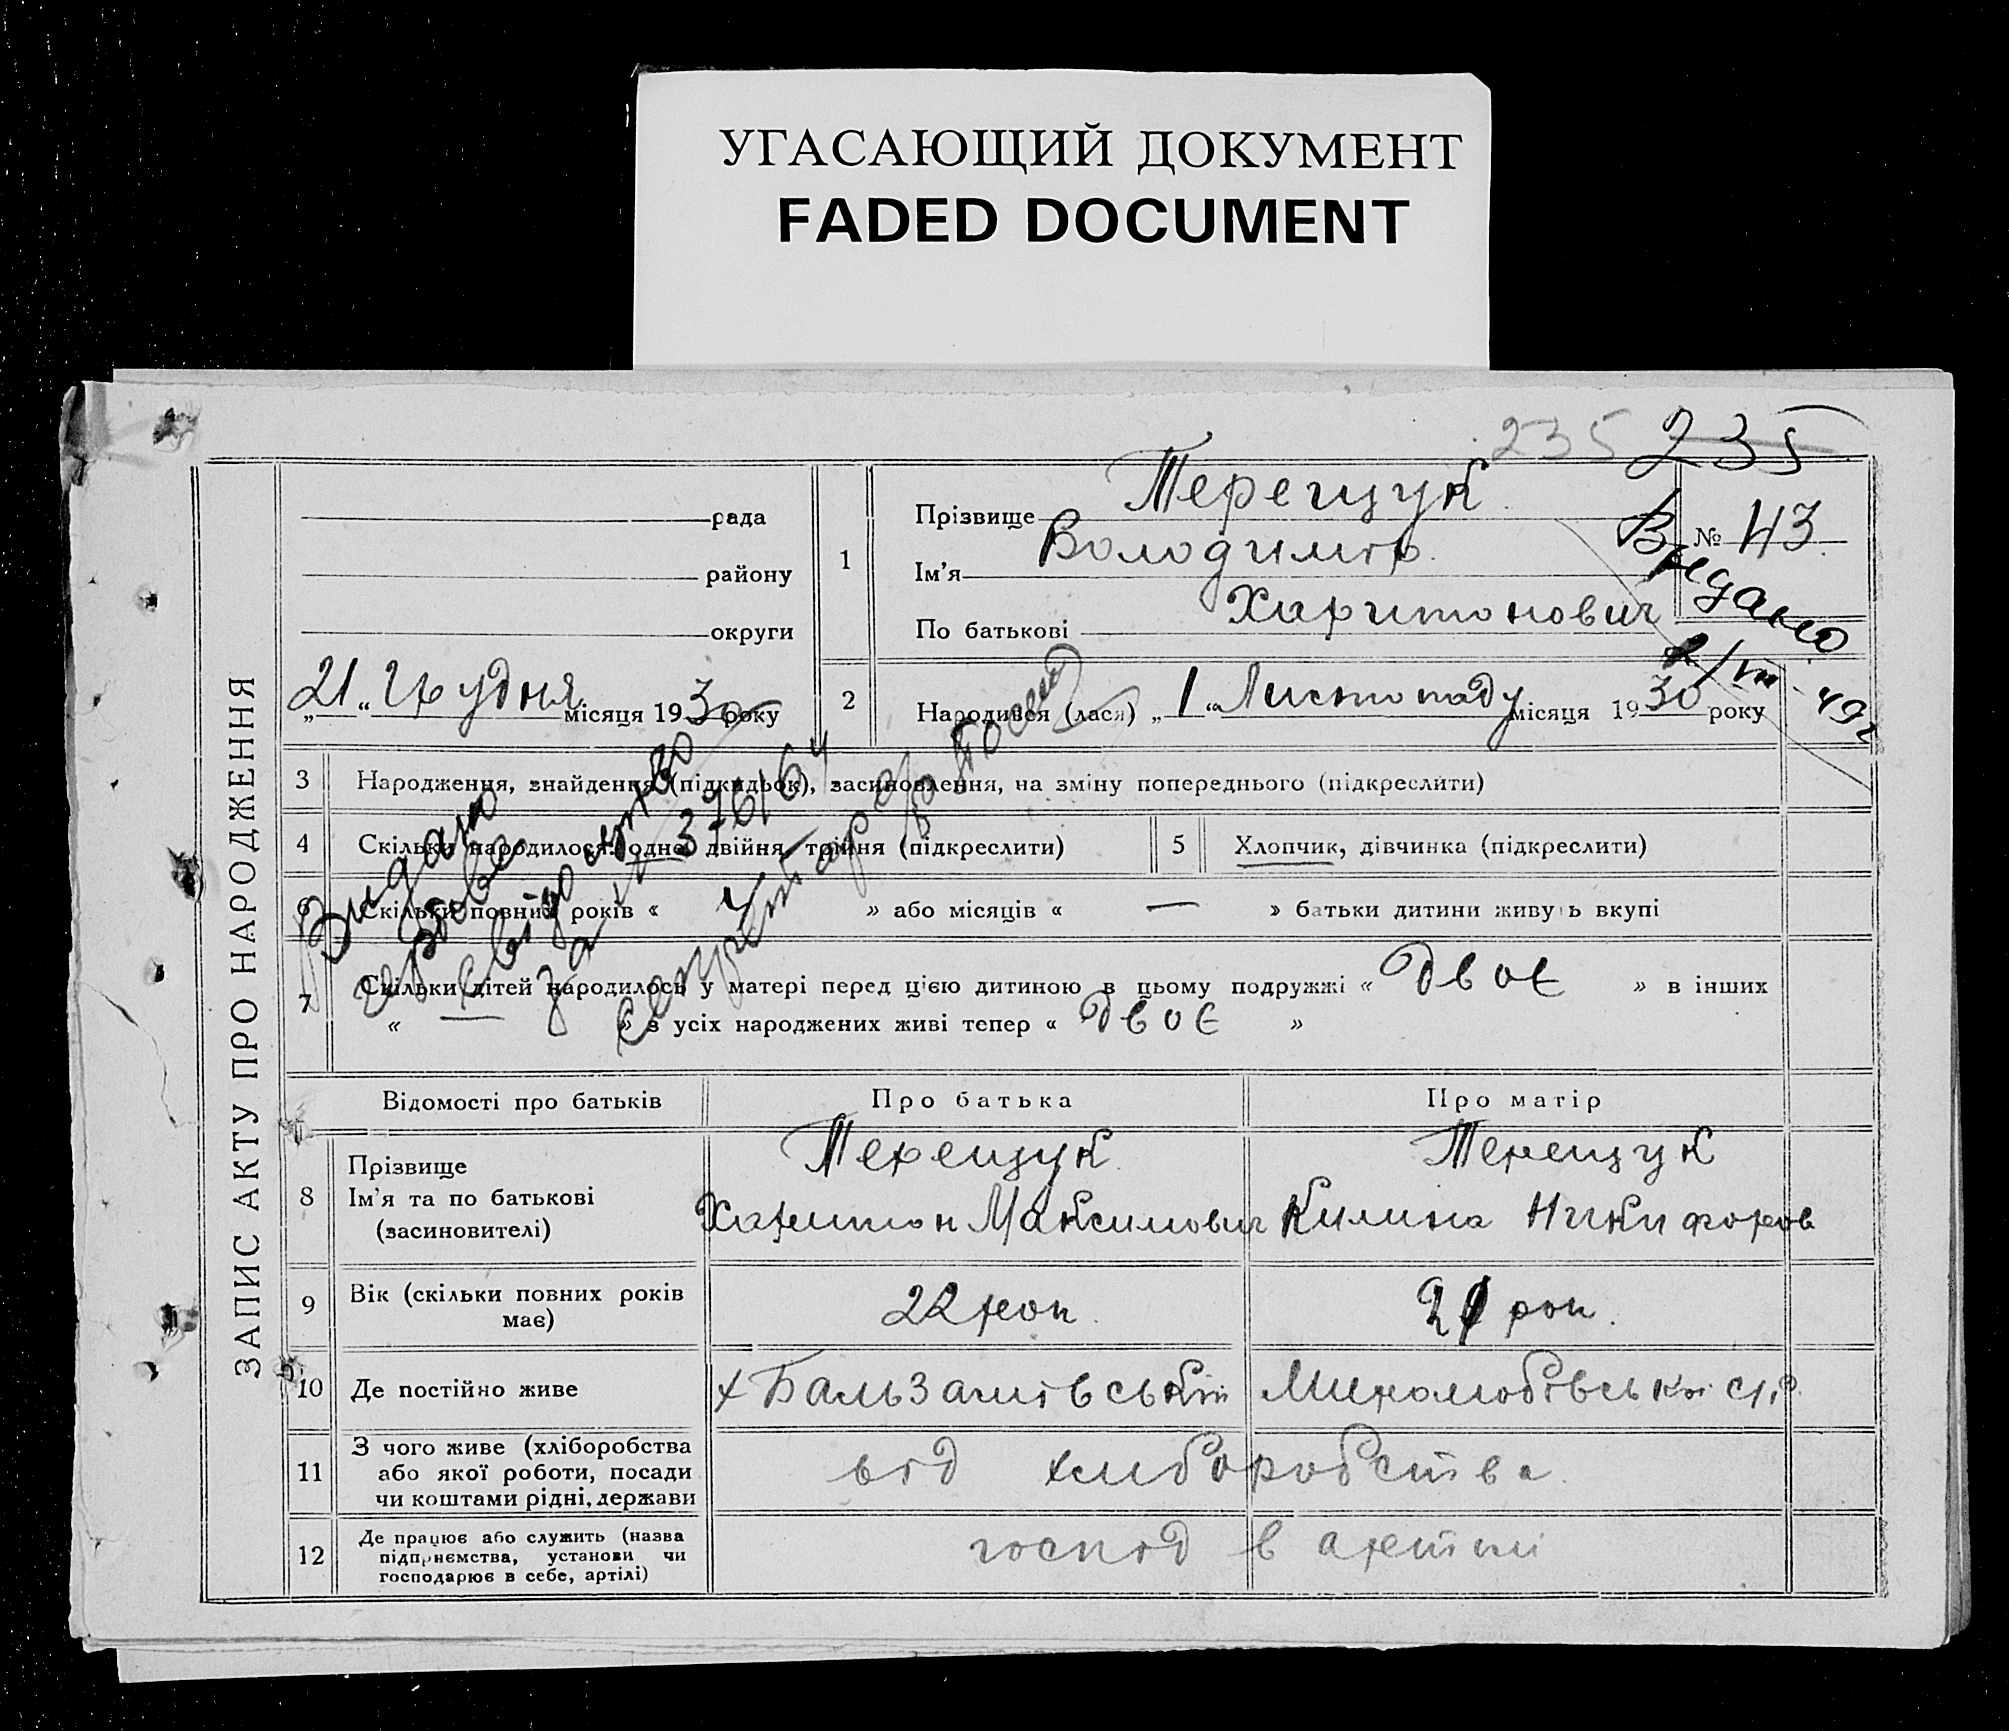 УГАСАЮЩИЙ ДОКУМЕНТ
FADED DOCUMENT
235 235
ЗАПИС АКТУ ПРО НАРОДЖЕННЯ
рада
району
округи
„21“ Грудня місяця 1930 року
1
Прізвище Терещук
Ім'я Володимір
По батькові Харитонович
№ 43.
Видано
49р
2
Народився (лася) „1“ Листопаду місяця 1930 року
3 Народження, знайдення (підкидьок), засиновлення, на зміну попереднього (підкреслити)
4 Скільки народилося: одне, двійня, трійня (підкреслити)
5 Хлопчик, дівчинка (підкреслити)
6 Скільки повних років « 4 » або місяців « — » батьки дитини живуть вкупі
7 Скільки дітей народилось у матері перед цією дитиною в цьому подружжі « двоє » в інших
« — » з усіх народжених живі тепер « двоє »
Видано
свідоцтво
за № 376164
Секретар
Відомості про батьків
Про батька
Про матір
8 Прізвище
Ім'я та по батькові
(засиновителі)
Терещук
Харитон Максимович
Терещук
Килина Никифоров
9 Вік (скільки повних років
має)
22 рок.
21 рок.
10 Де постійно живе
х Бальзамівський Миролюбівської с/р.
11 З чого живе (хліборобства
або якої роботи, посади
чи коштами рідні, держави
від хліборобства.
12 Де працює або служить (назва
підприємства, установи чи
господарює в себе, артілі)
господ в артілі